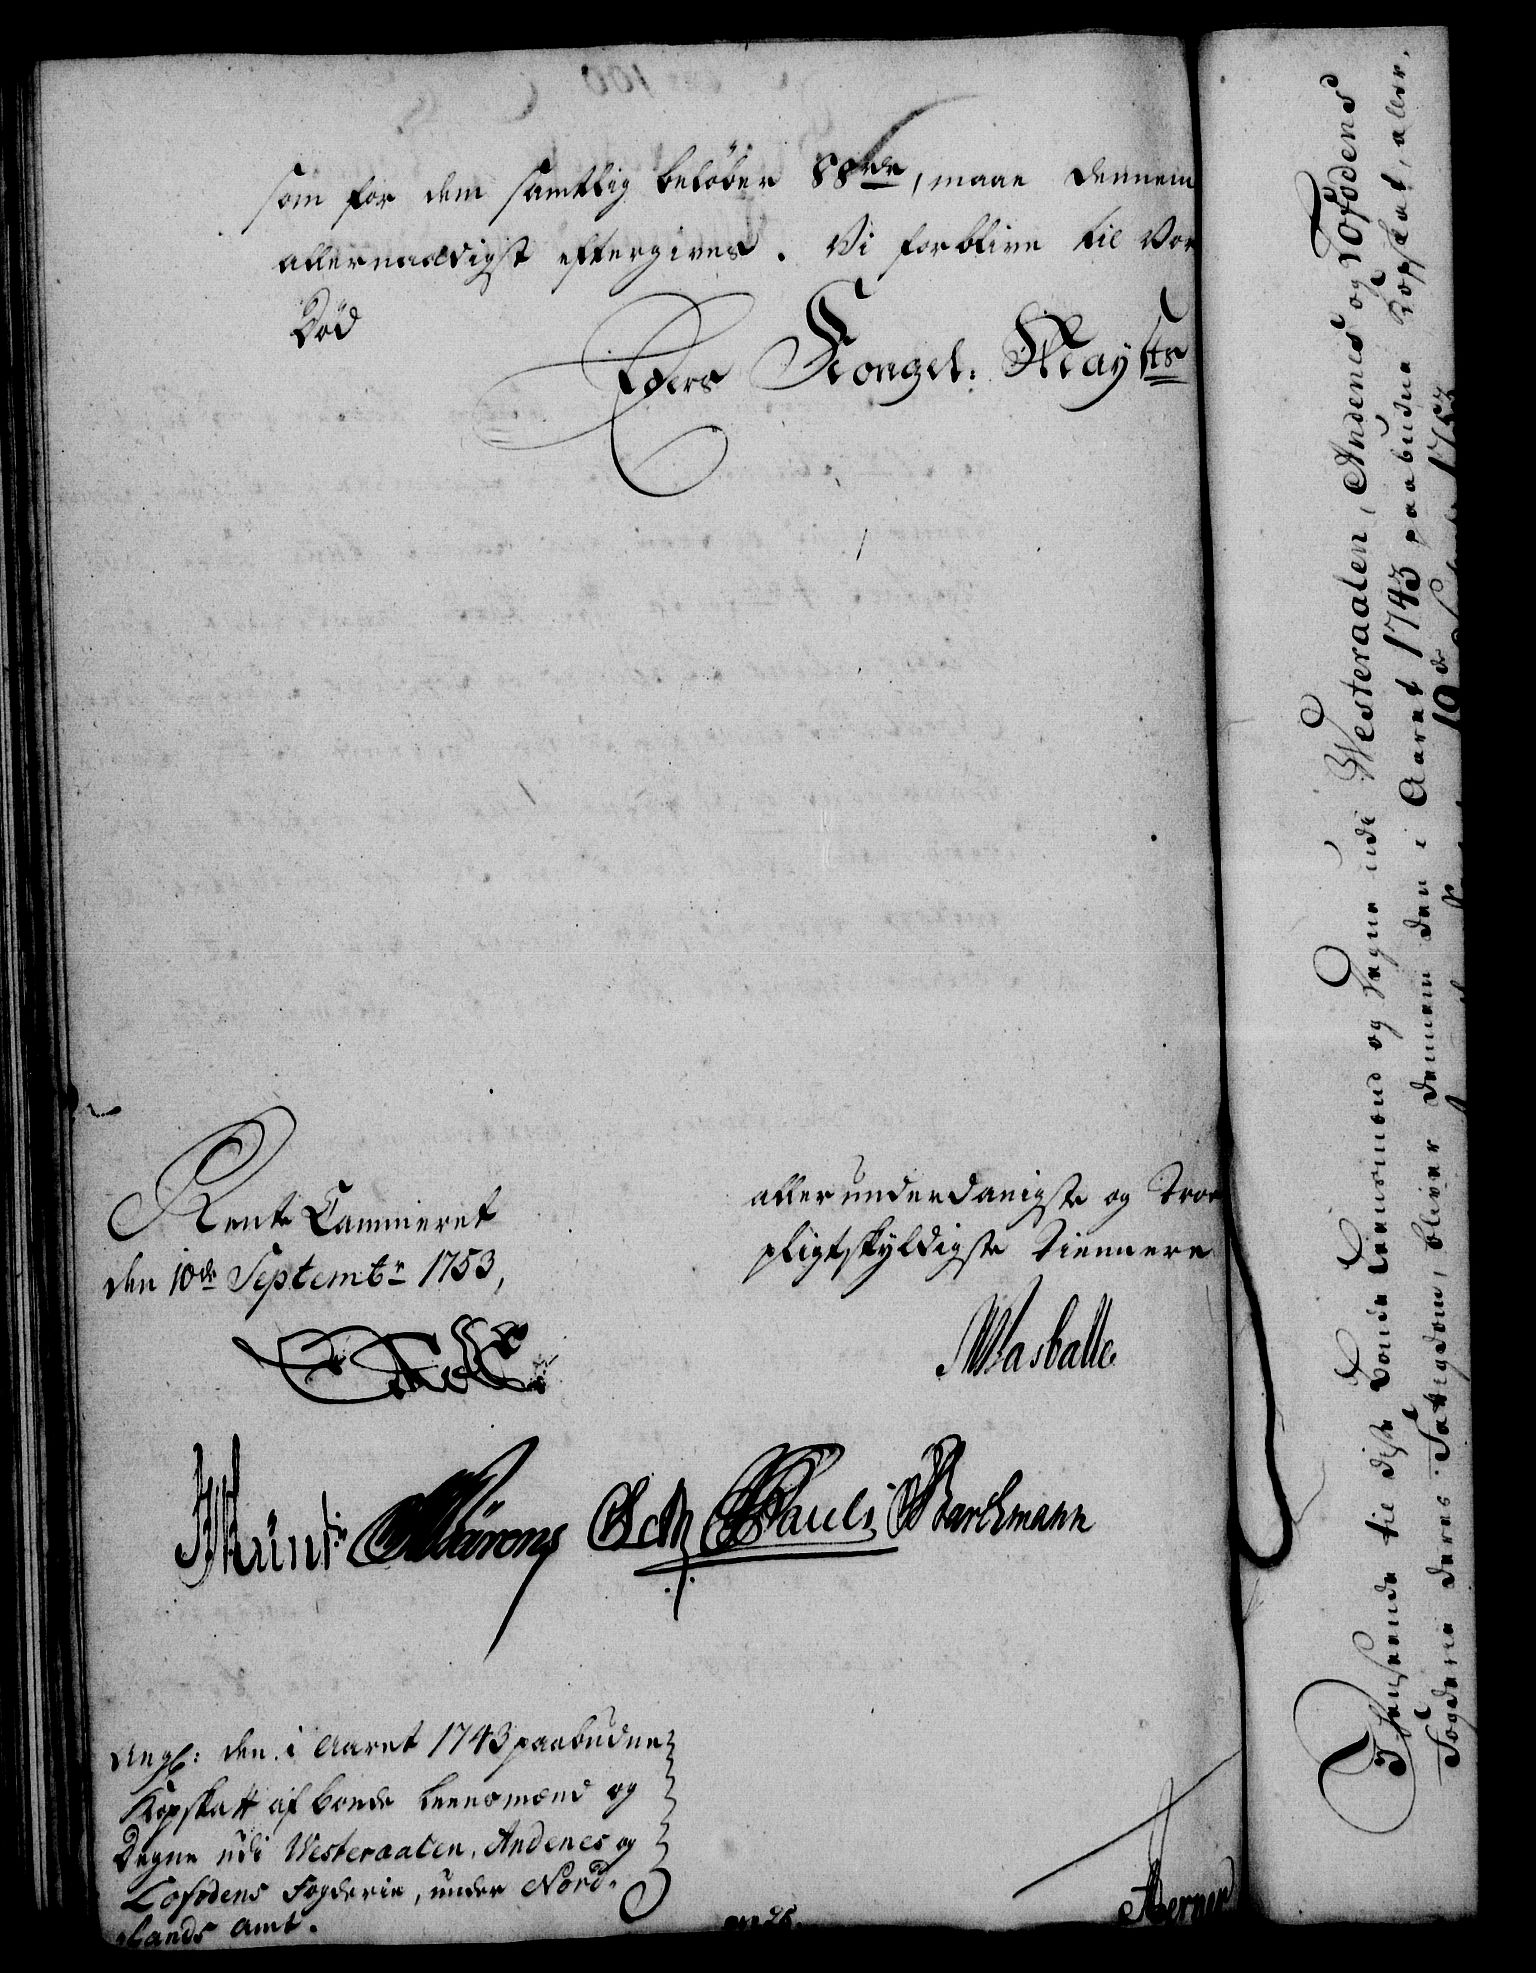 som for dem samtlig beløber 88 rdr, maae dennem
allernaadigst eftergives. Vi forblive til Vor
Død
Eders Kongel: Mayts
Rente Cammeret
den 10de Septembr 1753,
allerunderdanigste og Troe
pligtskyldigste Tiennere
Holst
Wasballe
Pauli Barchmann
Ang: den i Aaret 1743 paabudne
Kopskatt af bonde Leensmænd og
Degne udi Westeraalen, Andenes og
Lofodens Fogderie, under Nord-
lands Amt.
I Henseende til disse Bonde Leensmænd og Degne udi Westeraalen, Andenes og Lofodens
Fogderie deres Fattigdom, bliver dennem den i Aaret 1743 paabudne Kopskat, aller-
10de 1753